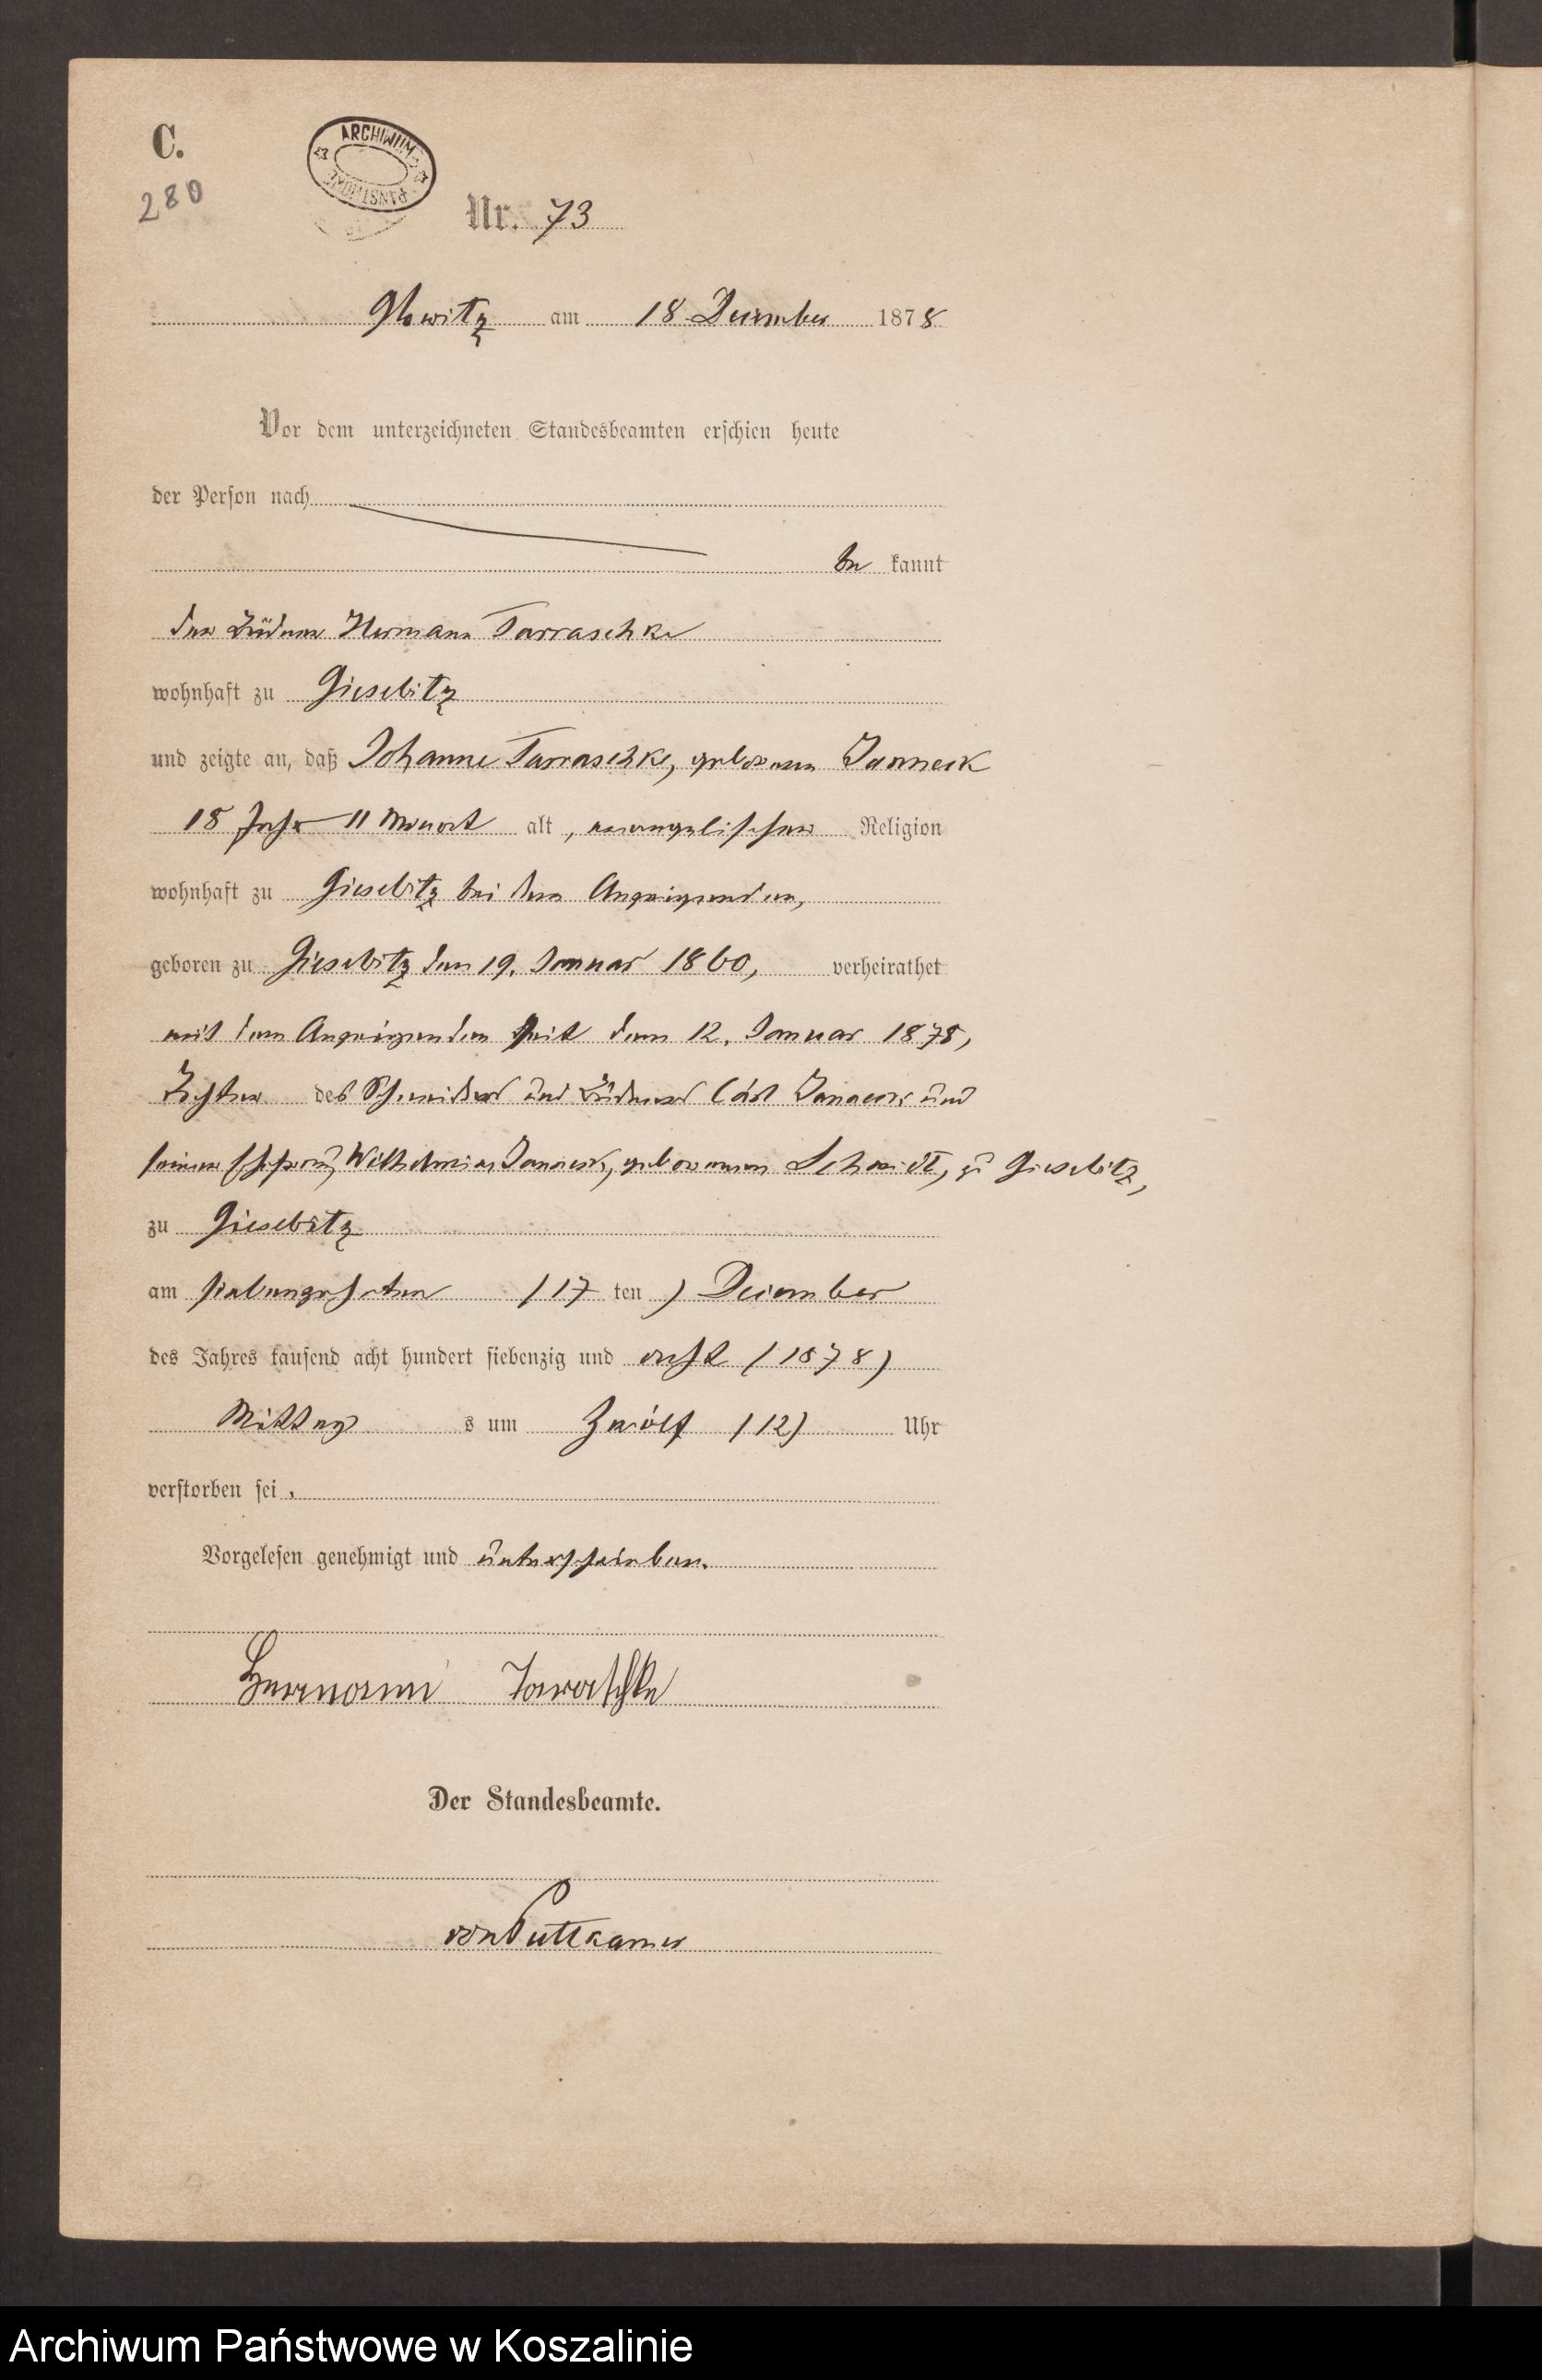 C.
280
ARCHIWUM
PAŃSTWOWE
Nr. 73
Glowitz am 18 December 1878
Vor dem unterzeichneten Standesbeamten erschien heute
der Person nach
be kannt
der Büdner Hermann Tarraschke
wohnhaft zu Giesebitz
und zeigte an, daß Johanne Tarraschke, geborenen Janneck
18 Jahr 11 Monat alt, evangelischer Religion
wohnhaft zu Giesebitz bei dem Anzeigenden,
geboren zu Giesebitz den 19. Januar 1860, verheirathet
mit dem Anzeigenden seit dem 12. Januar 1878,
Tochter des Schneiders und Büdners Carl Janneck und
seiner Ehefrau, Wilhelmine Janneck, geborenen Schmidt, zu Giesebitz,
zu Giesebitz
am siebenzehnten (17 ten) December
des Jahres tausend acht hundert siebenzig und acht (1878)
Mittag s um Zwölf (12) Uhr
verstorben sei.
Vorgelesen genehmigt und unterschrieben.
Hermann Taraschke
Der Standesbeamte.
von Puttkamer
Archiwum Państwowe w Koszalinie